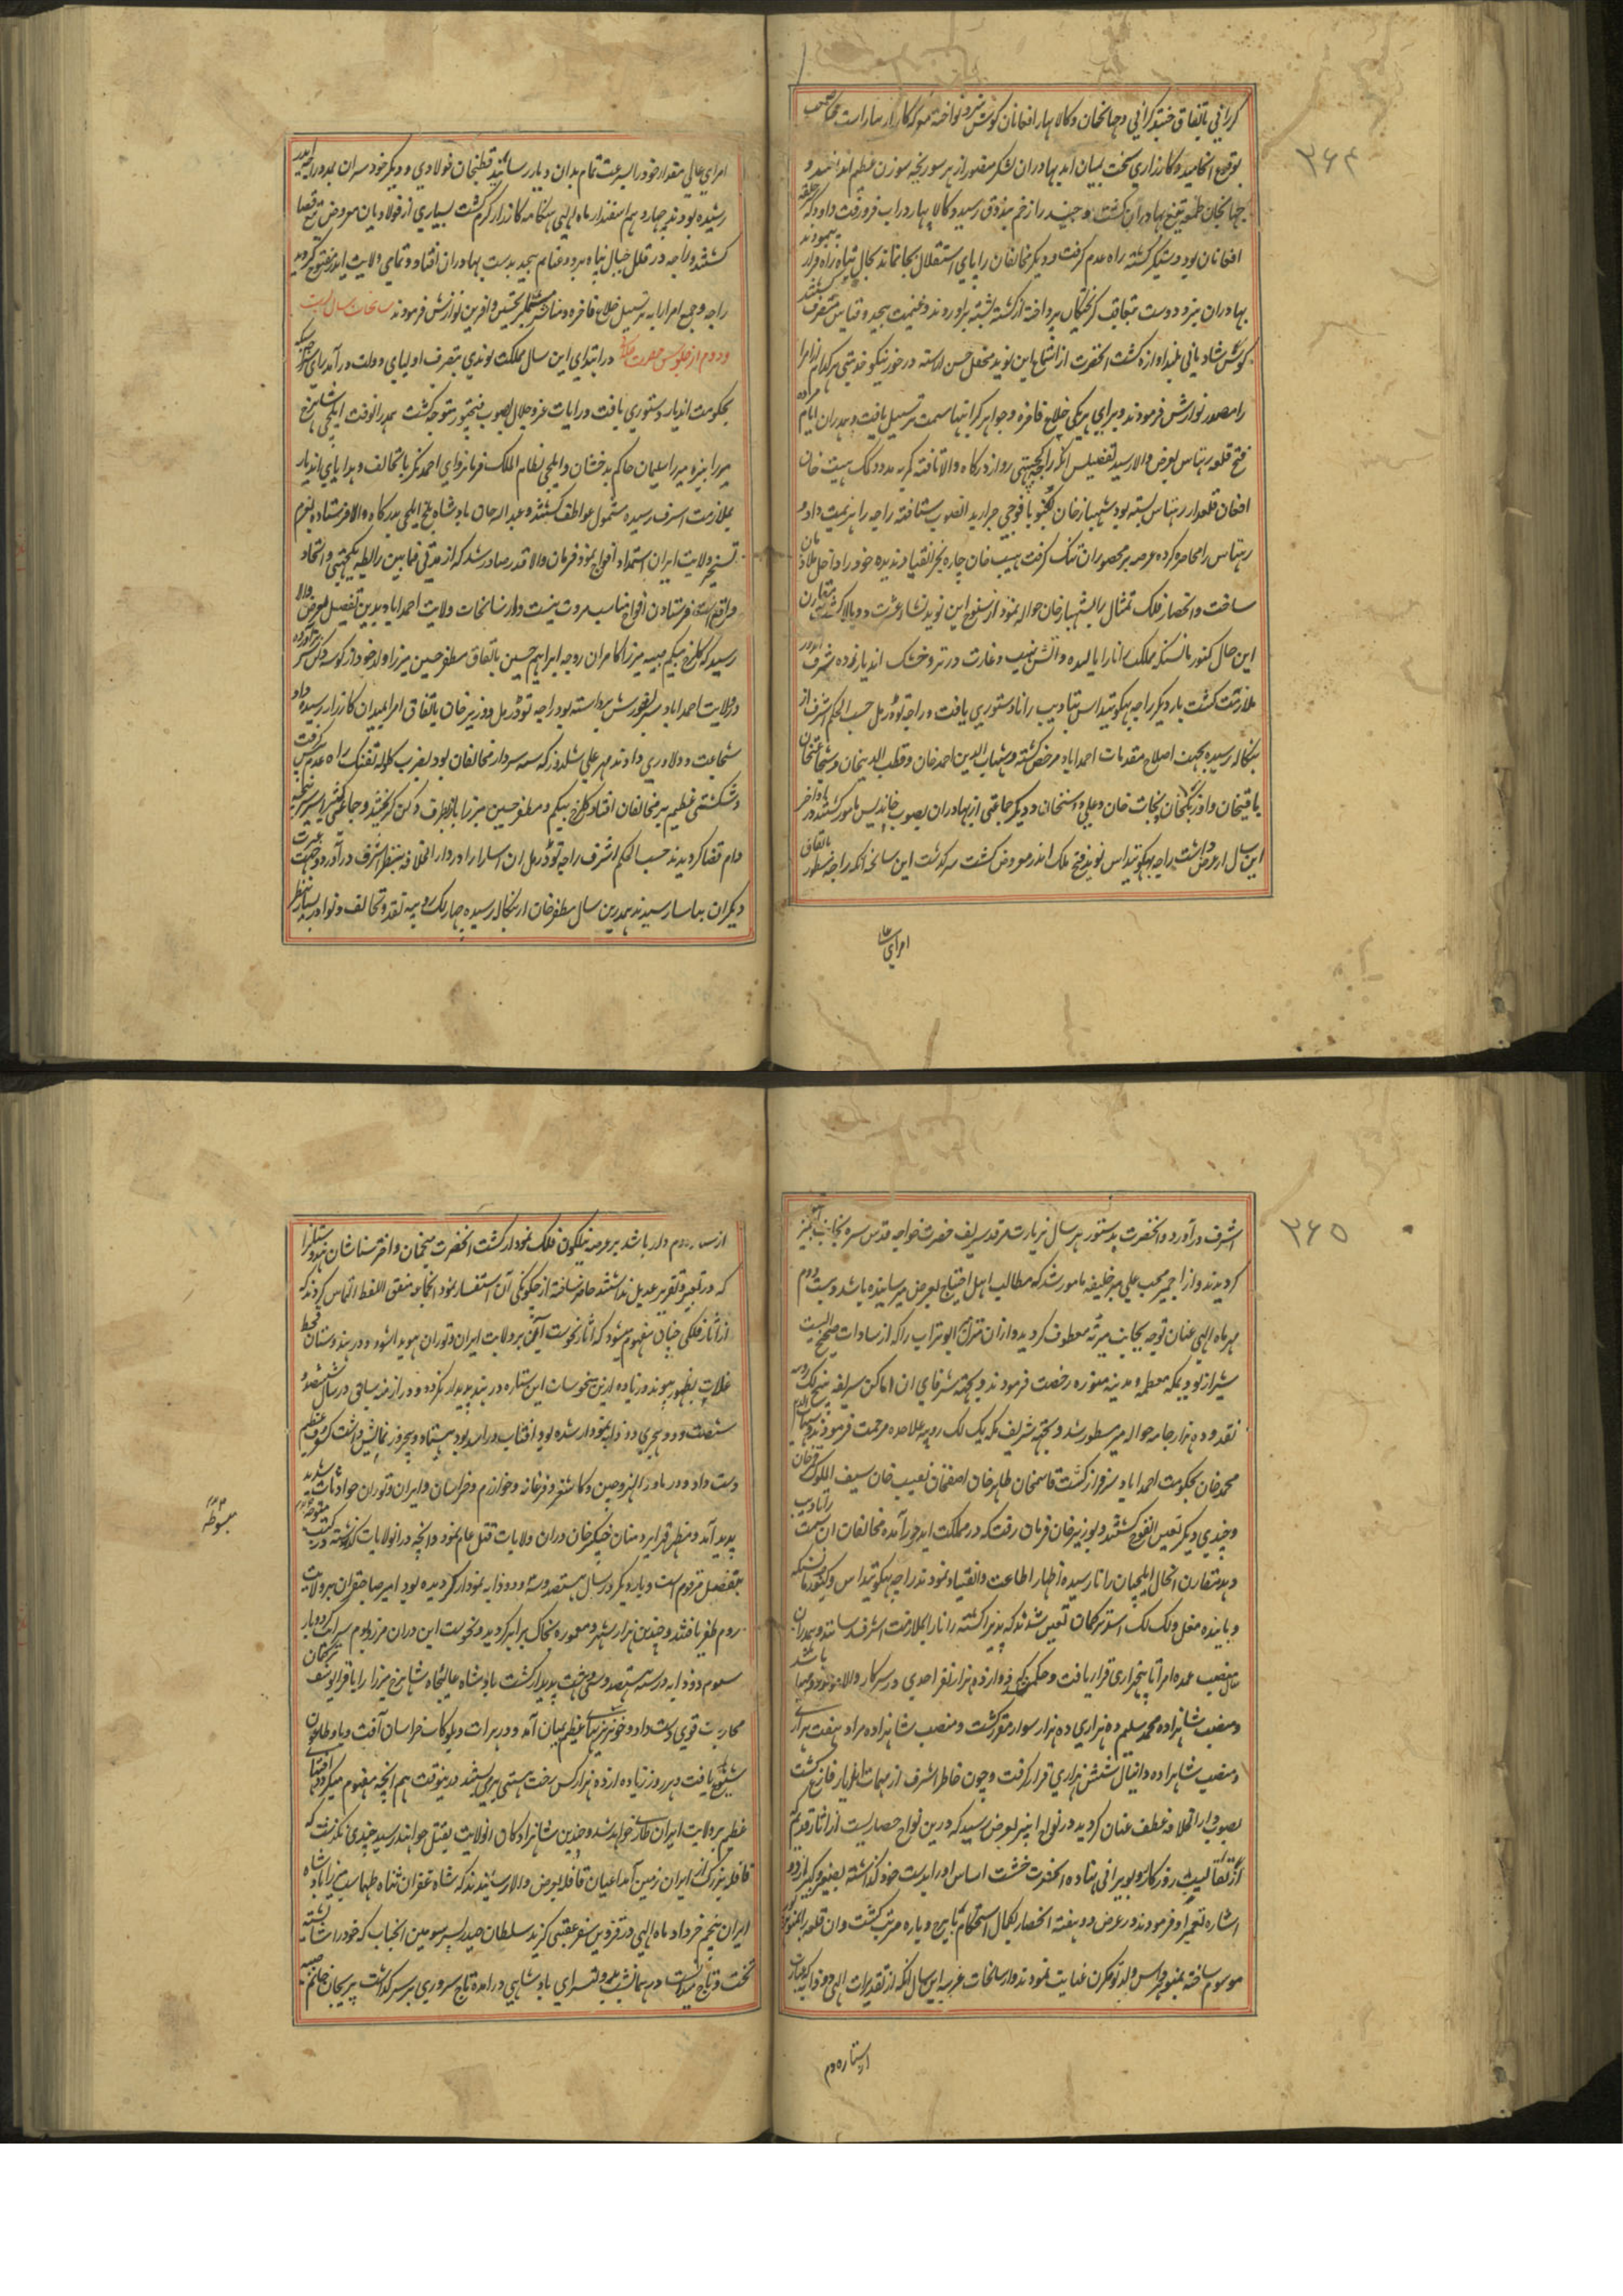 ۳۶۴
کررانی باتفاق جنید کرانی و جهانخان و کالا پهار افغانان کوس نبرد نواخته معرکه کارزار بیاراست
بوقوع انجامید و کارزاری سخت بمیان آمد بهادران لشکر منصور از هر سو ریخته سوزن عظیم انداختند و
جهانخان طعمه تیغ بهادران کشت و جنید را زخم بندوق رسید و کالا پهار دراب فرو رفت داود که
افغانان بود دستکیر کشته راه عدم کرفت و دیکر مخالفان را پای استقلال بجا نماند بحال تباه راه فرار
بهادران نیزه دست بتعاقب کریختکان پرداخته از کشته پشته براوردند و غنیمت بیحد و قیاس متصرف
کوس شادیانی بلند اوازه کشت انحضرت از استماع این نوید محفل حسن اراسته در خور نیکو خدمتی هر کدام از امرا
را مصدر نوازش فرمودند و برای هریکی خلاع فاخره و جواهر کرانبها سمت ترسیل یافت و همدران ایام
فتح قلعه رهتاس بعرض والا رسید تفصیلش انکه راجه کجپتی روا از درکاه والا تافته کمر به مدد کمک هیبت خان
افغان قلعدار رهتاس بسته بود شهباز خان کنبو با فوجی جرار بدانصوب شتافته راجه را هزیمت داد و
رهتاس را محاصره کرده عرصه بر محصوران تنک کرفت هیبت خان چاره بجز انقیاد ندیده خود را داخل
ساخت و انحصار فلک تمثال را بشهباز خان حواله نمود از سنوح این نوید نشاء عشرت دوبالا کشت
این حال کنور مانسنکه مملکت رانا را پایمال کرده و اتش نهیب و غارت در تر و خشک اندیار زده شرف
ملازمت کشت بار دیکر راجه بهکونتداس بتادیب رانا دستوری یافت و راجه تودرمل حسب الحکم اشرف از
بنکاله رسیده بجهت اصلاح مقدمات احمداباد مرخص کشته و شهاب الدین احمد خان و قطب الدینخان و شجاعتخان
باقیخان و نجابت خان و علی دوستخان و دیکر جماعتی از بهادران بصوب خاندیس مامور کشتند
این سال از عرض داشت راجه بهکونتداس نوید فتح ملک اندر معروض کشت سرکذشت این سانحه انکه راجه مسطور
امرای عا
امرای عالی مقدار خود را بسرعت تمام بدان دیار رسانید قطبخان فولادی و دیکر خود سران بمدد راجه اندر
رسیده بودند چهاردهم اسفندار ماه الهی هنکامه کارزار کرم کشت بسیاری از فولادیان معروض تیغ قضا
کشتند و راجه در قلل جبال پناه برد و غنایم بیحد بدست بهادران افتاد و تمامی ولایت ایدر مفتوح کردید
راجه و جمیع امرا را به ترسیل خلاع فاخره و مناشیر مشتمل بر تحسین و افرین نوازش فرمودند سانحات سال بیست
و دوم از جلوس حضرت در ابتدای این سال مملکت بوندی بتصرف اولیای دولت درآمد
بحکومت اندیار دستوری یافت و رایات عز و جلال بصوب فتحپور متوجه کشت همدرانوقت ایلچی شاهرخ
میرزا نبیره میرزا سلیمان حاکم بدخشان و ایلچی نظام الملک فرمانروای احمدنکر با تحائف و هدایای اندیار
بملازمت اشرف رسیده مشمول عواطف کشتند و عبداله خان بادشاه بلخ ایلچی بدرکاه والا فرستاده بعزم
تسخیر ولایت ایران استمداد افواج نمود فرمان والا قدر صادر شد که از مدتی فیمابین رابطه یکجهتی و اتحاد
واقع است فرستادن افواج مناسب مروت نیست و از سانحات ولایت احمداباد بدین تفصیل بعرض والا
رسید که کلرخ بیکم صبیه میرزا کامران زوجه ابراهیم حسین باتفاق مظفر حسین میرزا ولد خود از کوشه دکن سر برآورده
در ولایت احمداباد سر بشورش برداشته بود راجه تودرمل و وزیر خان باتفاق امرا بمیدان کارزار رسیده داد
شجاعت و دلاوری دادند مهر علی که سر سردار مخالفان بود بضرب کلوله تفنک راه عدم پیش کرفت
و شکستی عظیم بر مخالفان افتاد کلرخ بیکم و مظفر حسین میرزا باز بطرف دکن کریختند و جماعتی کثیر اسیر سرپنجه
دام قضا کردیدند حسب الحکم اشرف راجه تودرمل ان اسارا را در دارالخلافه بنظر اشرف درآورد و جهت عبرت
دیکران بیاسا رسیدند همدرین سال مظفر خان از بنکاله رسیده چهار لک روپیه نقد و تحائف و نوادر بسیار بنظر
۳۶۵
اشرف درآورد و انحضرت بدستور هر سال زیارت مرقد شریف حضرت خواجه قدس سره بجانب اجمیر
کردیدند و از اجمیر محب علی میر خلیفه مامور شد که مطالب اهل احتیاج بعرض میرسانیده باشد و بیست دوم
مهر ماه الهی عنان توجه بجانب میرته معطوف کردید و ازان منزل ابو تراب را که از سادات صحیح النسب
شیراز بود بمکه معظمه و مدینه منوره رخصت فرمودند و بجهت شرفای ان اماکن شریفه پنج لک روپیه
نقد و ده هزار جامه حواله میر مسطور شد و بجهت شریف مکه یک لک روپیه علاحده مرحمت فرمودند
محمد خان بحکومت احمداباد سرفراز کشت قاسمخان طاهر خان نقیب خان سیف الملوک
و چندی دیکر تعین انفوج کشتند و بوزیر خان فرمان رفت که در مملکت ایدر درآمده مخالفان ان سمت را تادیب
دهد مقارن انحال ایلچیان رانا رسیده اظهار اطاعت و انقیاد نمودند راجه بهکونتداس و کنور مانسنکه
و پاینده مغل و استر ترکمان تعین شدند که پذیرا کشته رانا را بملازمت اشرف رسانند و همدران
سال منصب عمده امرا تا پنجهزاری قرار یافت و حکم شد که دوازده هزار نفر احدی در سرکار والا موجود باشد
و منصب شاهزاده محمد سلیم ده هزاری ده هزار سوار مقرر کشت و منصب شاهزاده مراد هفت هزاری
و منصب شاهزاده دانیال شش هزاری قرار کرفت و چون خاطر اشرف از مهمات اندیار فارغ کشت
بصوب دارالخلافه عطف عنان کردید در نواح انبیر بعرض رسید که درین نواح حصاریست از اثار قدیم که
از تقالیب روزکار رو بویرانی نهاده انحضرت خشت اساس اورا بدست خود کذاشته بصغیر و کبیر اردو
اشاره تعمیر او فرمودند در عرض دو هفته انحصار بکمال استحکام با برج و باره مرتب کشت و ان قلعه را بمنوهرنکر
موسوم ساخته بمنوهرداس ولد لونکرن عنایت نمودند و از سانحات غریبه این سال انکه از تقدیرات الهی ذو ذوابه که عبارت
از ستاره دم
از ستاره دم دار باشد بر عرصه نیلکون فلک نمودار کشت انحضرت منجمان و اختر شناسان هندوستان را
که در تعبیر و تقریر عدیل نداشتند حاضر ساخته از چکونکی آن استفسار نمود انجماعه متفق اللفظ التماس کردند که
از اثار فلکی چنان مفهوم میشود که اثار نحوست این بر ولایت ایران و توران هویدا شود و در هندوستان قحط
غلات بظهور پیوند و زیاده ازین نحوسات این ستاره در هند پدیدار نکردد و در ازمنه سابق در سال ششصد و
شصت و دو هجری ذو ذوابه نمودار شده بود افتاب در اسد بود هشتاد و پنجروز نمایش داشت کسوف عظیم
دست داد و در ماورا النهر و چین و کاشغر و فرغانه و خوارزم و خراسان و ایران و توران حوادثات شدید
پدید آمد و منظر قهر ایزد منان چنکیز خان دران ولایات قتل عام نمود و انچه درانولایات کذشته در کتب
بتفصیل مرقوم است و بار دیکر در سال هشتصد و سه ذو ذوابه نمودار کردیده بود امیر صاحبقران بر ولایت
روم ظفر یافتند و چندین هزار شهر و معموره بخاک برابر کردید و نحوست این دران مرز و بوم سرایت کرد و بار
سیوم ذو ذوابه در سنه هشتصد و سی و هفت پدیدار کشت بادشاه عالیجاه شاهرخ میرزا را با قرا یوسف ترکمان
محاربت قوی دست داد و خونریزیهای عظیم بمیان آمد و در هرات و بلوکات خراسان آفت وبا و طاعون
شیوع یافت و هر روز زیاده از ده هزار کس رخت هستی می بستند درینوقت هم انچه مفهوم میکردد
عظیم بر ولایت ایران طاری خواهد شد و چندین شاهزادکان انولایت بقتل خواهند رسید چندی نکذشت که
قافله بزرک از ایران زمین آمد اعیان قافله بعرض والا رسانیدند که شاه غفران پناه طهماسب میرزا بادشاه
ایران پنجم خرداد ماه الهی در قزوین سفر عقبی کزید سلطان حیدر پسر سومین انجناب که خود را شایسته
تخت و تاج میدانست در همانشب بدولتسرای بادشاهی درامده تاج سروری بر سر کذاشت پریجان خانم صبیه
مبسوطه